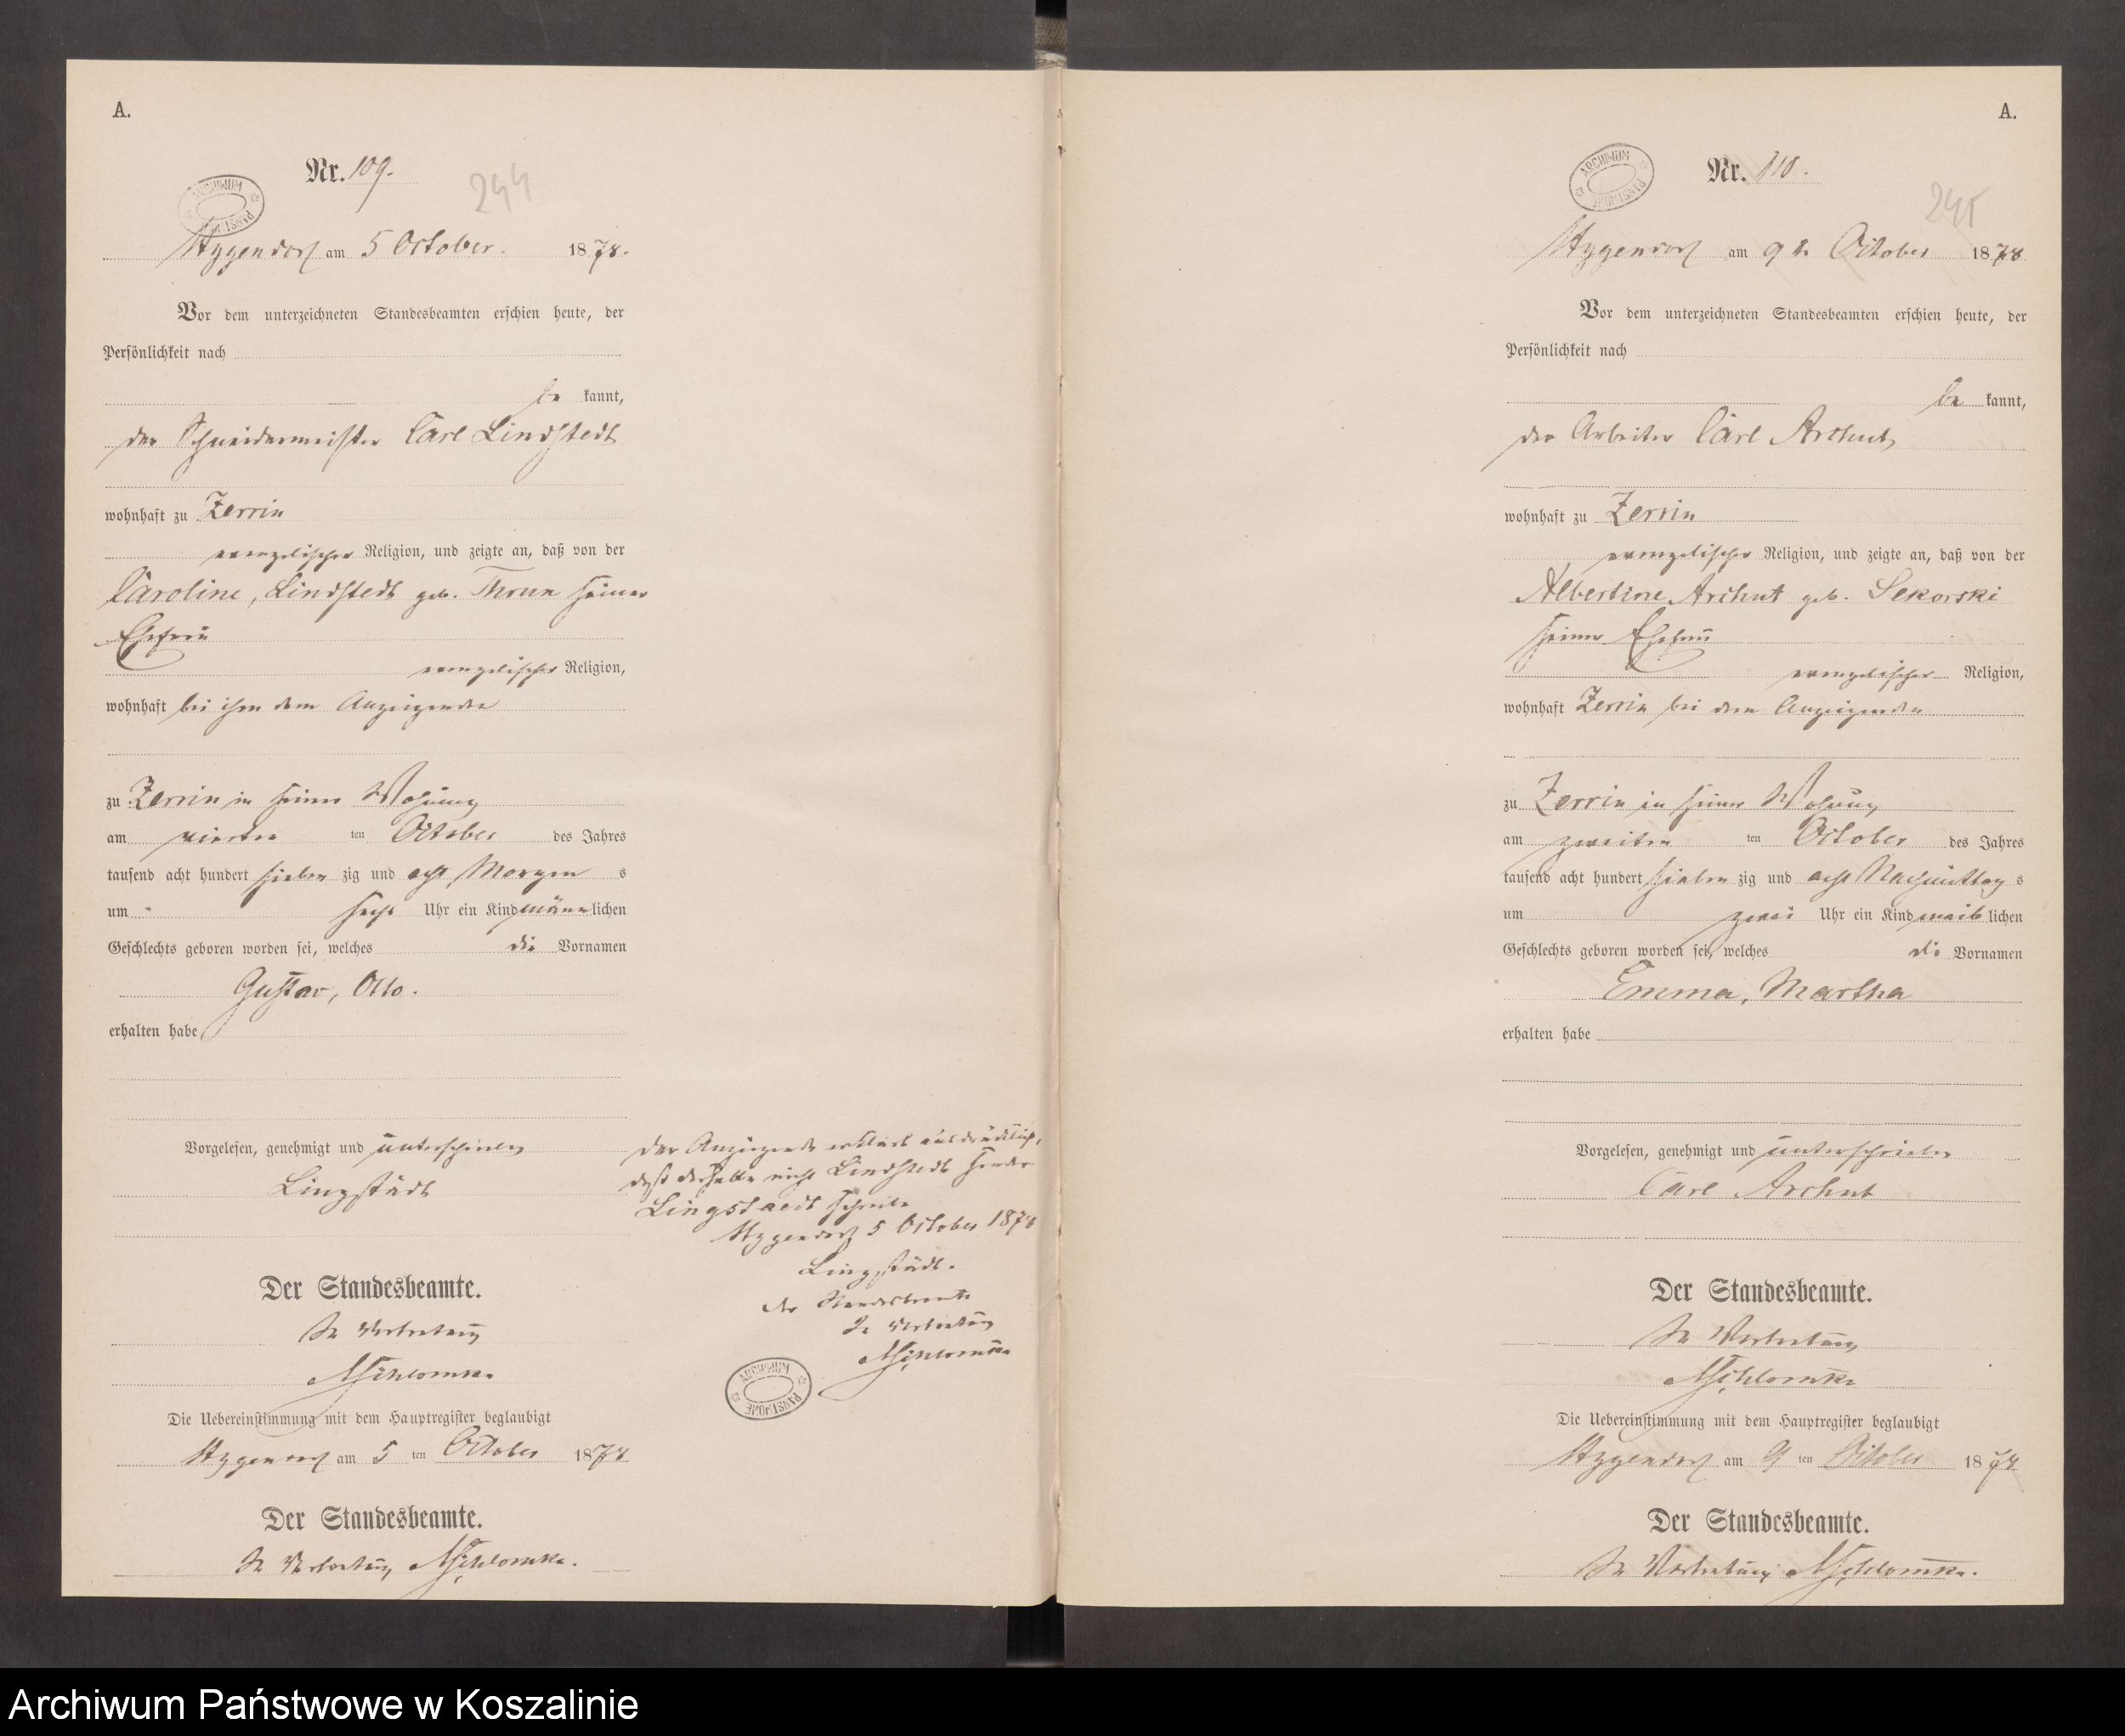 A.
Nr. 109.
244
ARCHIWUM PAŃSTWOWE
am 5 October. 1878.
Vor dem unterzeichneten Standesbeamten erschien heute, der
Persönlichkeit nach
be kannt,
der Schneidermeister Carl Lindstedt
wohnhaft zu Zerrin
evangelischer Religion, und zeigte an, daß von der
Caroline, Lindstedt geb. Thrun seiner
Ehefrau
evangelischer Religion,
wohnhaft bei ihm dem Anzeigenden
zu Zerrin in seiner Wohnung
am vierten ten October des Jahres
tausend acht hundert sieben zig und acht Morgen s
um sechs Uhr ein Kind männlichen
Geschlechts geboren worden sei, welches die Vornamen
Gustav, Otto.
erhalten habe
Vorgelesen, genehmigt und unterschrieben
Lingstädt
Der Standesbeamte.
In Vertretung
Die Uebereinstimmung mit dem Hauptregister beglaubigt
am 5 ten October 1878
Der Standesbeamte.
In Vertretung
Der Anzeigende erklärt ausdrücklich,
daß derselbe nicht Lindstedt sonder
Lingstaedt schreibe
5 October 1878
Lingstädt.
Der Standesbeamte
In Vertretung
ARCHIWUM PAŃSTWOWE
A.
Nr. 110.
245
ARCHIWUM PAŃSTWOWE
am 9 t. October 1878
Vor dem unterzeichneten Standesbeamten erschien heute, der
Persönlichkeit nach
be kannt,
der Arbeiter Carl Archut
wohnhaft zu Zerrin
evangelischer Religion, und zeigte an, daß von der
Albertine Archut geb. Sekorski
seiner Ehefrau
evangelischer Religion,
wohnhaft Zerrin bei dem Anzeigenden
zu Zerrin in seiner Wohnung
am zweiten ten October des Jahres
tausend acht hundert sieben zig und acht Nachmittag s
um zwei Uhr ein Kind weib lichen
Geschlechts geboren worden sei, welches die Vornamen
Emma, Martha
erhalten habe
Vorgelesen, genehmigt und unterschrieben
Carl Archut
Der Standesbeamte.
In Vertretung
Die Uebereinstimmung mit dem Hauptregister beglaubigt
am 9 ten October 1878
Der Standesbeamte.
In Vertretung
Archiwum Państwowe w Koszalinie